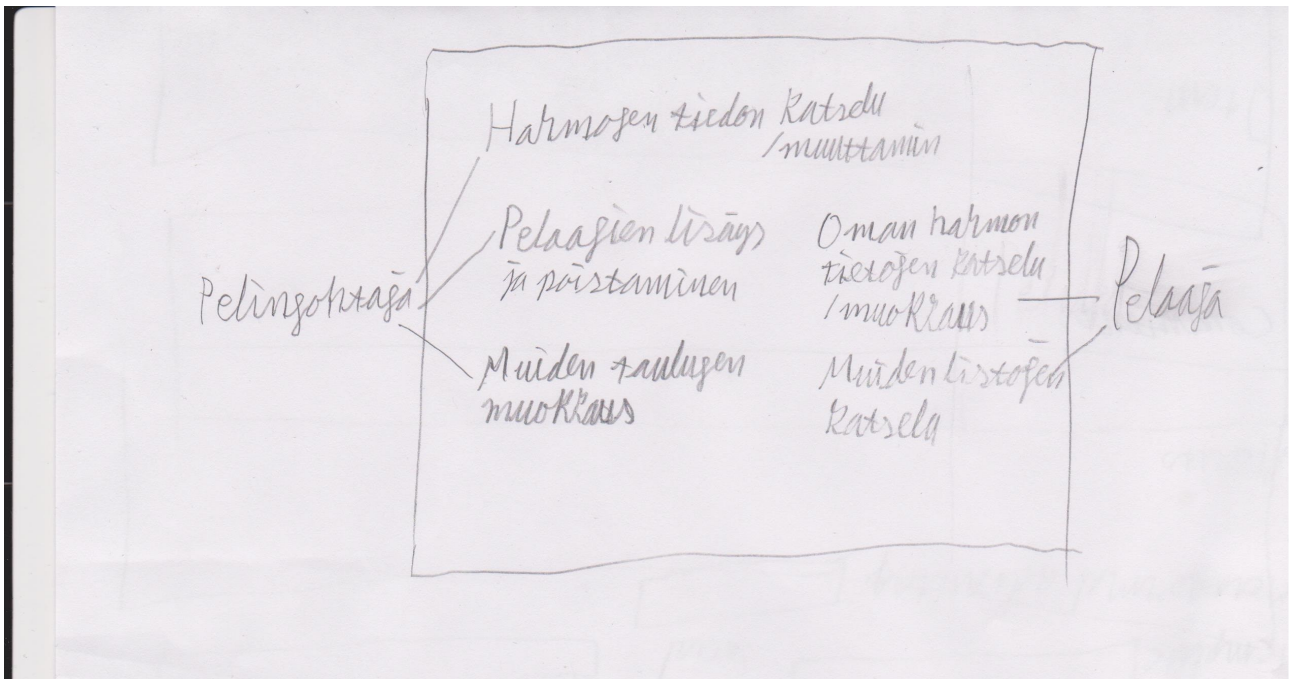 Hahmojen tiedon katselu
/muuttamin
Pelaajien lisäys
ja poistaminen
Muiden taulujen
muokkaus
Oman hahmon
tietojen katselu
/muokkaus
Muiden listojen
katselu
Pelinjohtaja
Pelaaja